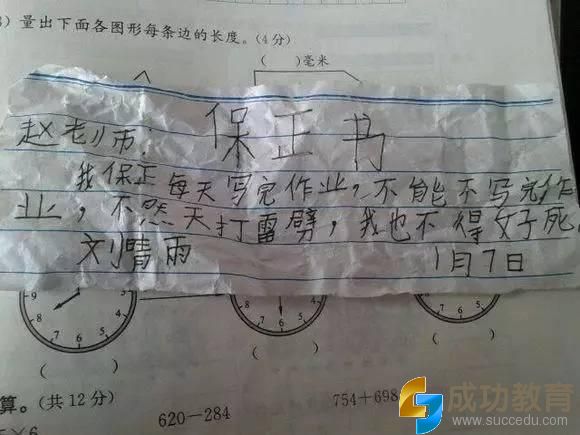 )量出下面各图形每条边的长度。(4分)
(　)毫米
保正书
赵老师:
我保正每天写完作业,不能不写完作
业,不然天打雷劈,我也不得好死。
刘晴雨 1月7日
9 8 7 6 5 4
8 7 6 5 4
8 7 6 5 4
(　) (　) (　)
算。(共12分)
×6 620-284 754+698
成功教育
www.succedu.com